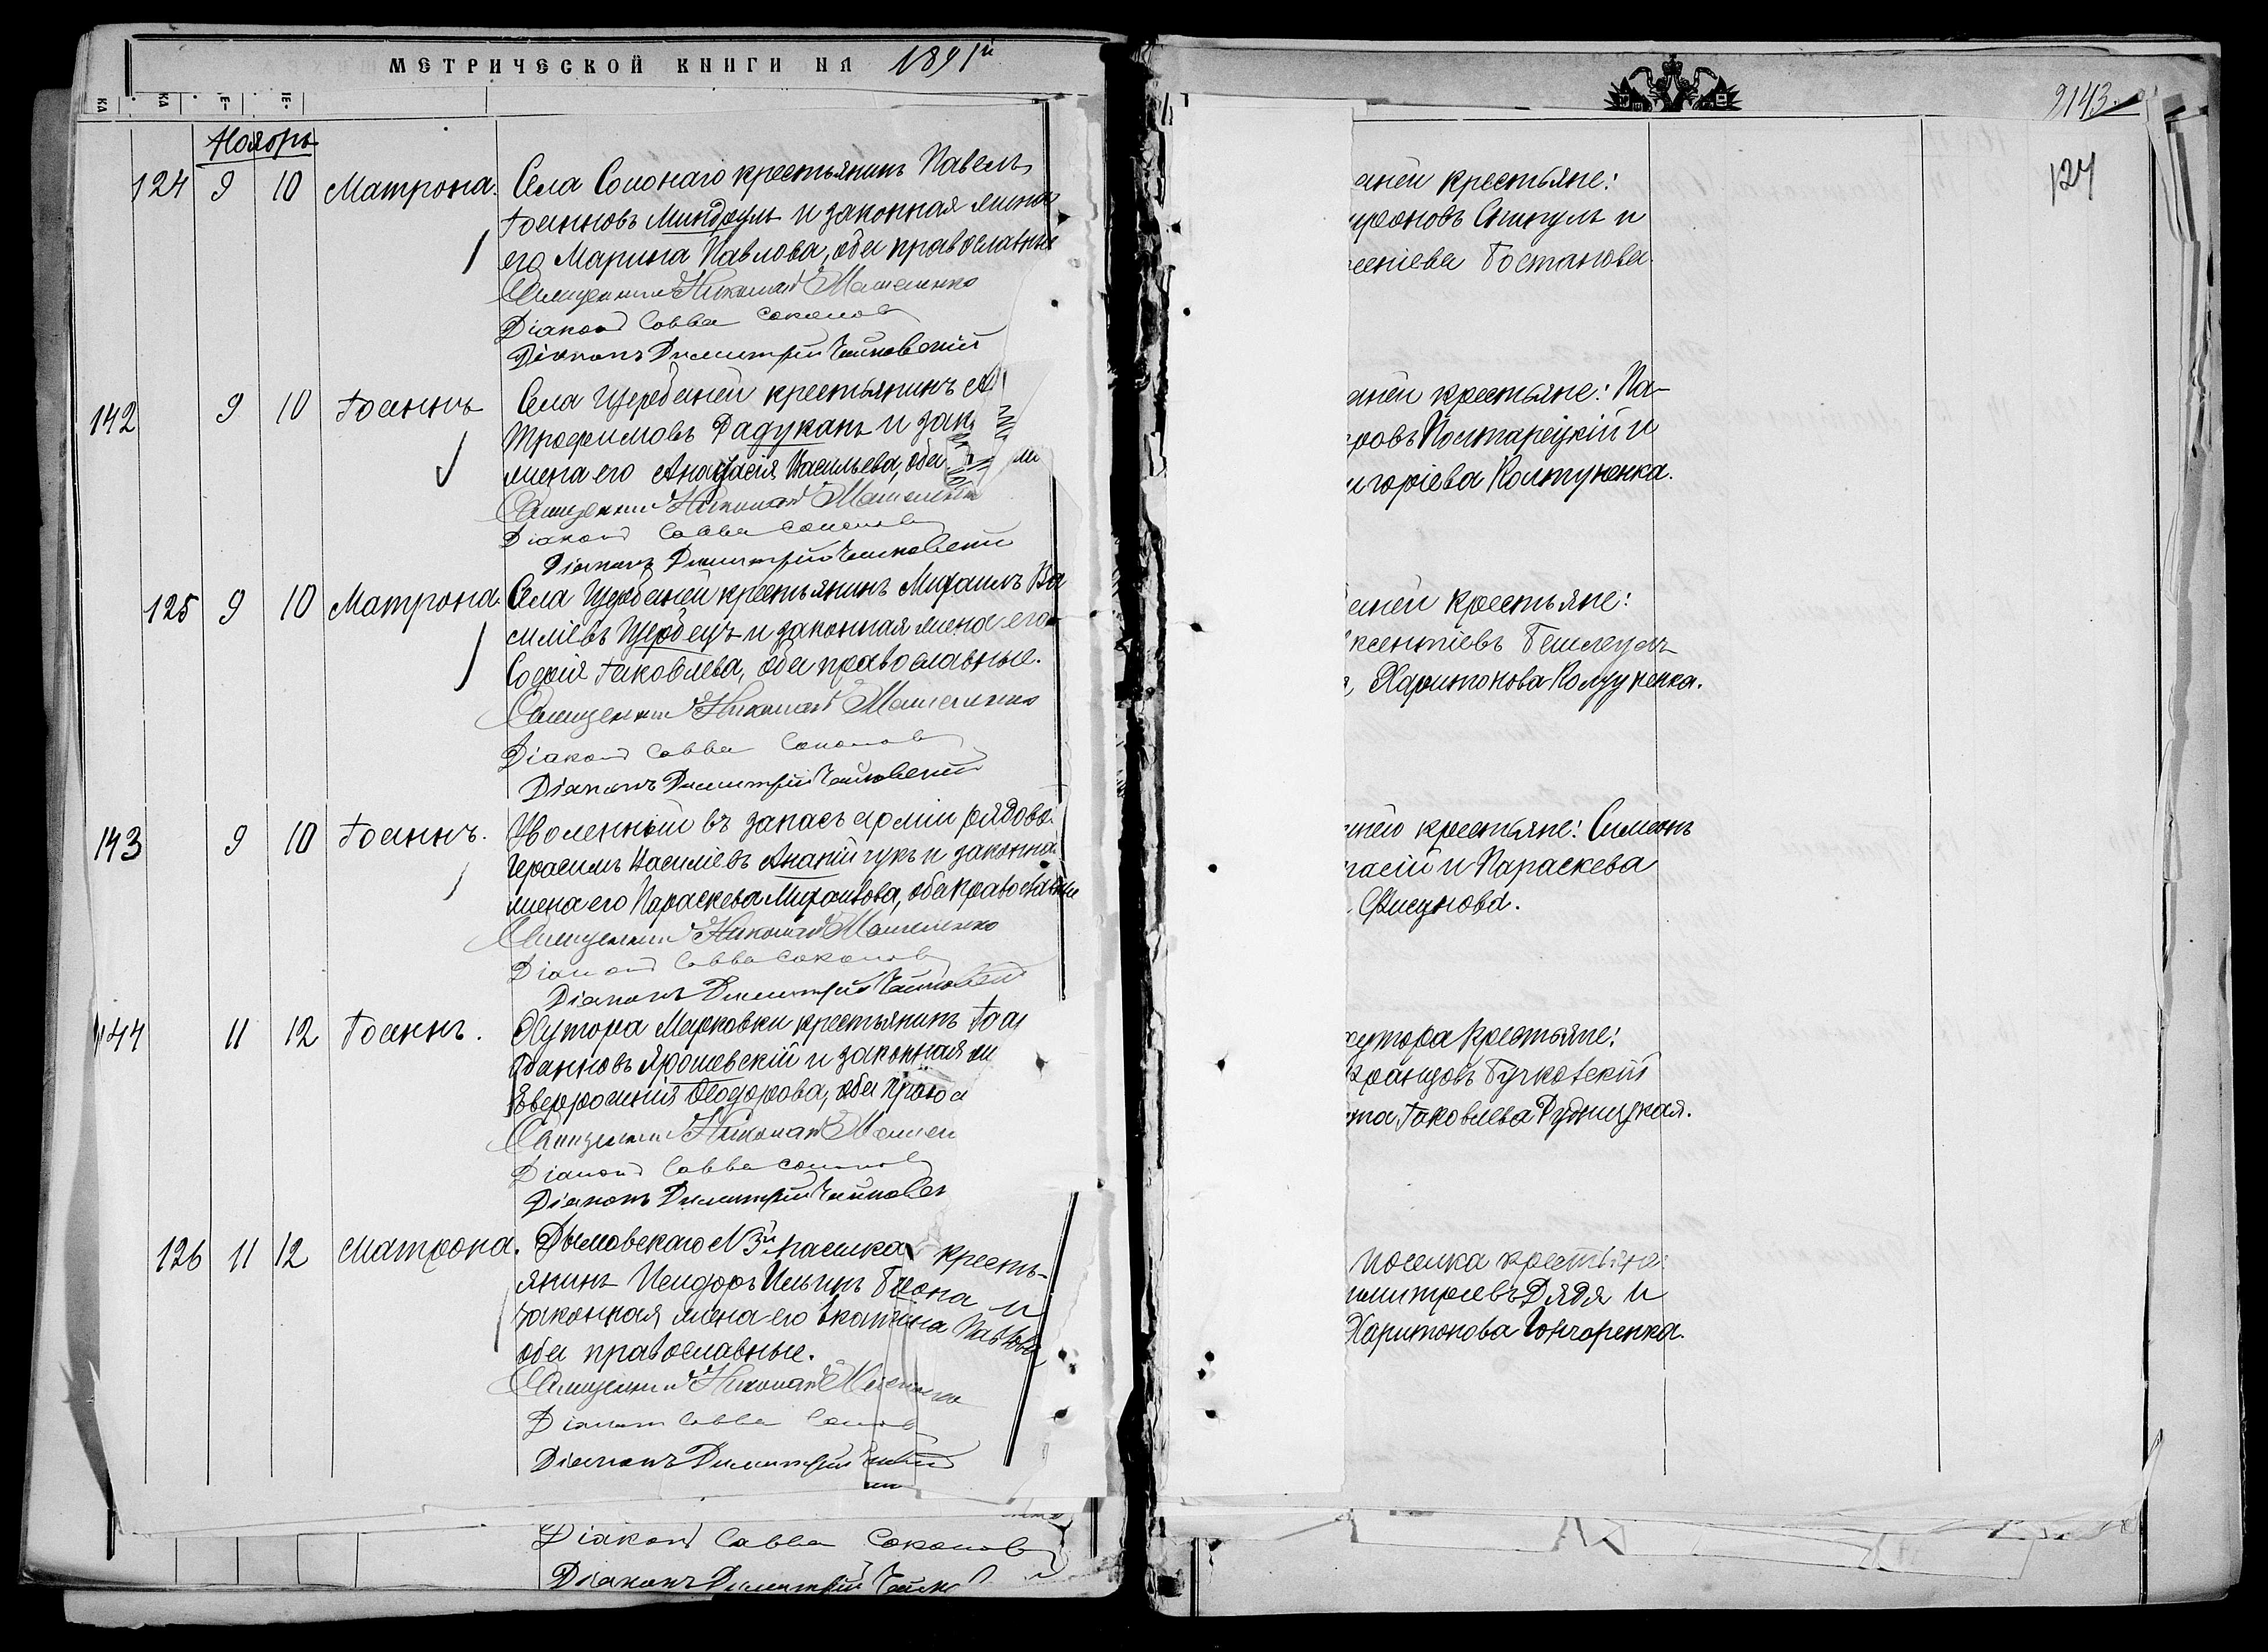 МЕТРИЧЕСКОЙ КНИГИ НА 1891й
Ноябрь
124 9 10 Матрона. Села Солонаго крестьянинъ Павелъ
Іоанновъ Миндрулъ и законная жена
его Марина Павлова, оба православные
Священникъ Николай
Діаконъ Савва Соколовъ
Діаконъ Димитрій Чайковскій
142 9 10 Іоаннъ Села Щербаней крестьянинъ
Трофимовъ Радуканъ и зак
жена его Анастасія Васильева, оба
Священникъ Николай
Діаконъ Савва Соколовъ
Діаконъ Димитрій Чайковскій
125 9 10 Матрона. Села Щербаней крестьянинъ Михаилъ Ва
силіевъ Щербецъ и законная жена его
Софія Іаковлева, оба православные.
Священникъ Николай
Діаконъ Савва Соколовъ
Діаконъ Димитрій Чайковскій
143 9 10 Іоаннъ. Уволенный въ запасъ арміи рядовы
Герасимъ Василіевъ Ананійчукъ и законна
жена его Параскева Михаилова, оба православные
Священникъ Николай
Діаконъ Савва Соколовъ
Діаконъ Димитрій Чайковскій
144 11 12 Іоаннъ. Хутора Марковки крестьянинъ Іоа
Іоанновъ Ярошевскій и законная ж
Евфросинія Ѳеодорова, оба правосл
Священникъ Николай
Діаконъ Савва Соколовъ
Діаконъ Димитрій Чайковск
126 11 12 Матрона. Дымовскаго № 3й поселка кресть-
янинъ Исидоръ Ильинъ и
законная жена его Павлова,
оба православные.
Священникъ Николай
Діаконъ Савва
Діаконъ Димитрій
Діаконъ Савва Соколовъ
Діаконъ Димитрій Чайк
9143.
124
аней крестьяне:
и
Бостанова.
аней крестьяне: Па-
ровъ Полтарецкій и
игоріева Колтуненка.
аней крестьяне:
ксентіевъ Бешлеулъ
Харитонова Колтуненка.
крестьяне: Симеонъ
расій и Параскева
Фисунова.
хутора крестьяне:
Францовъ Бучковскій
та Іаковлева Рудницкая.
поселка крестьяне:
имитріевъ Дядя и
Харитонова Гончаренка.